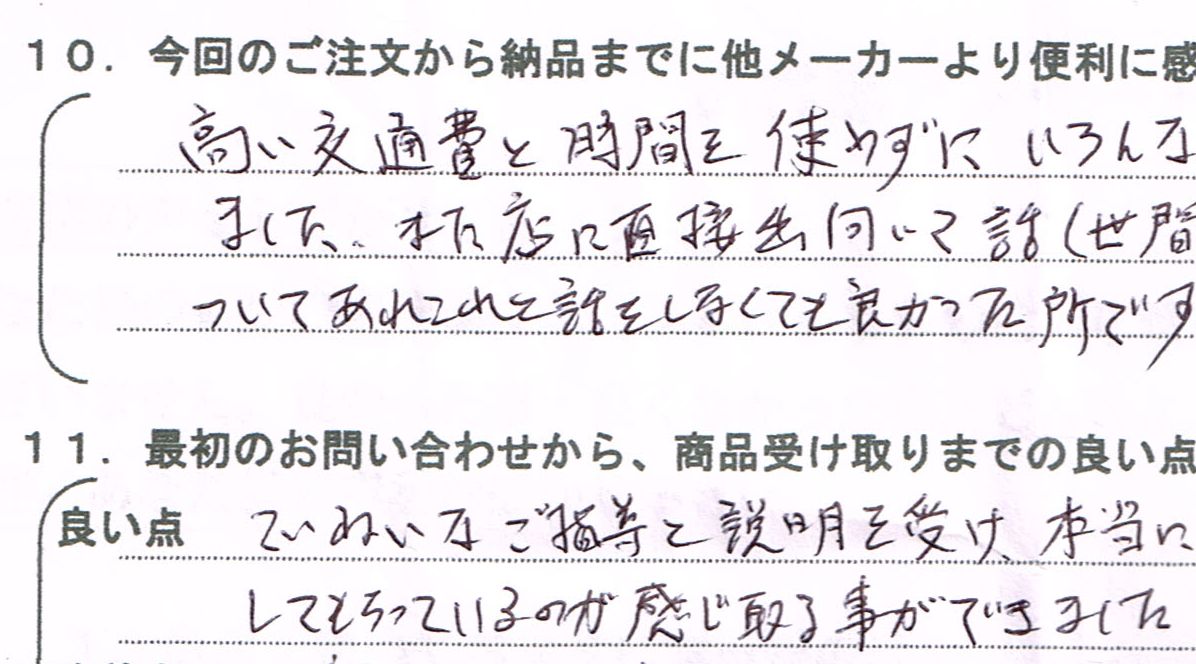 10. 今回のご注文から納品までに他メーカーより便利に感
高い交通費と時間を使わずに いろんな
ました、また店に直接出向いて話(世間
ついてあれこれと話をしなくても良かった所です
11. 最初のお問い合わせから、商品受け取りまでの良い点
良い点 ていねいなご指導と説明を受け、本当に
してもらっているのが感じ取る事ができました